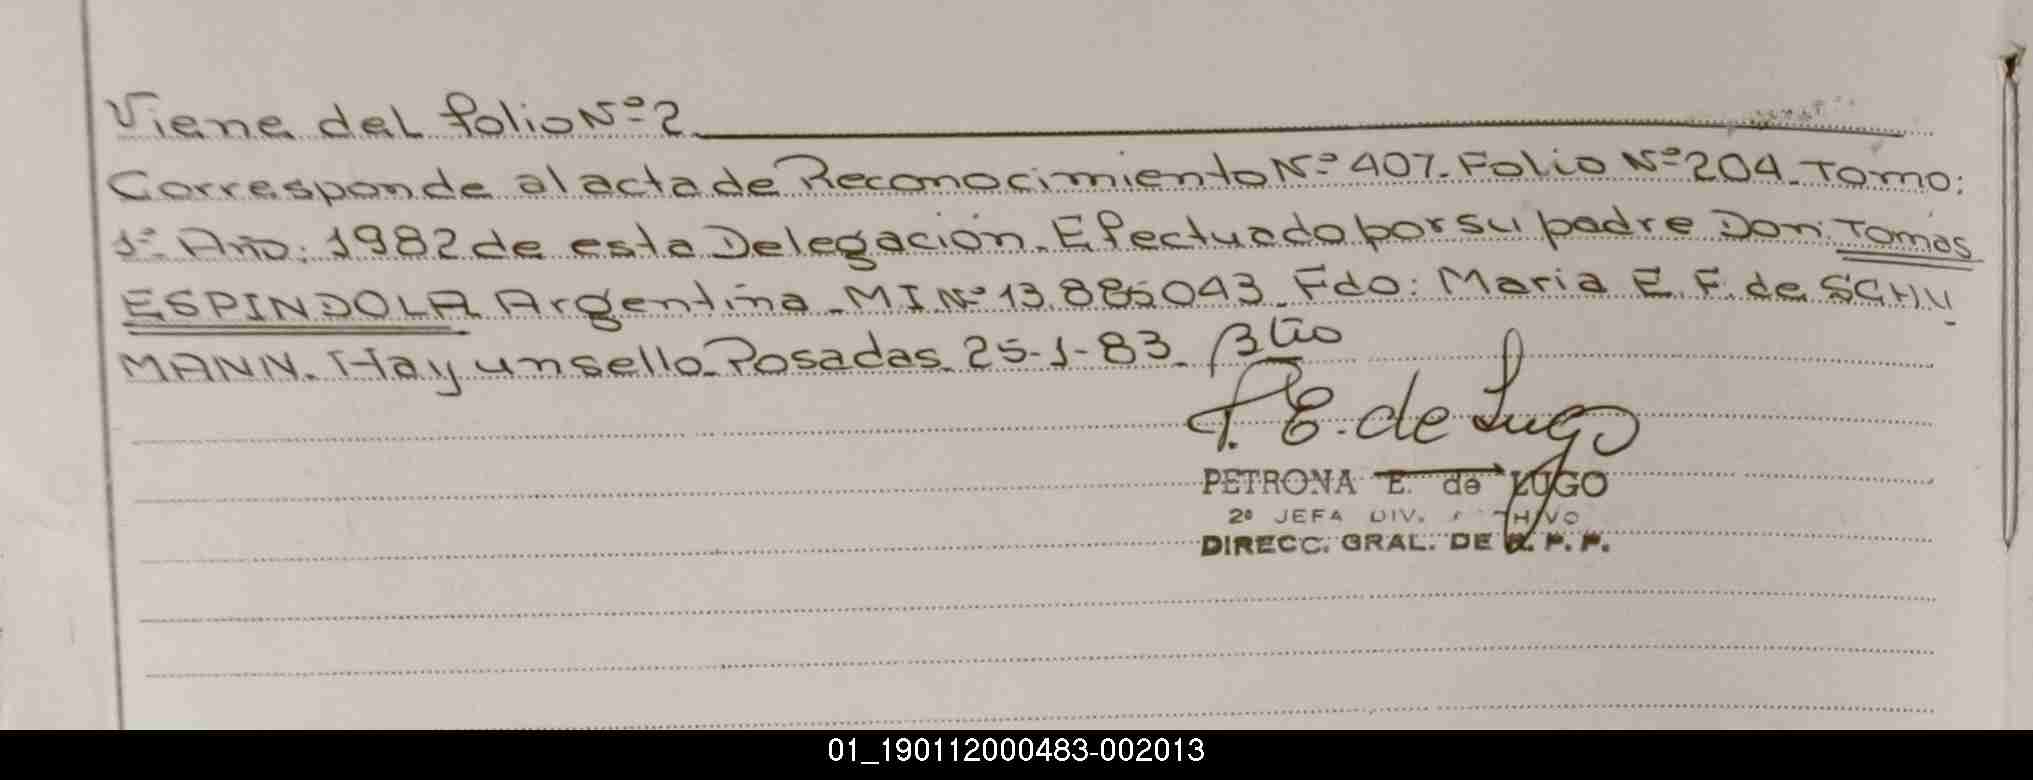 Viene del folio Nº 2
Corresponde al acta de Reconocimiento Nº 407. Folio Nº 204. Tomo:
1º. Año: 1982 de esta Delegación. Efectuado por su padre Don: Tomás
ESPINDOLA Argentina. MI Nº 13.885043. Fdo: Maria E. F. de SCHU
MANN. Hay un sello. Posadas. 25-1-83.
P. E. de Lugo
PETRONA E. de LUGO
2º JEFA DIV.
DIRECC. GRAL. DE R. P. P.
01_190112000483-002013